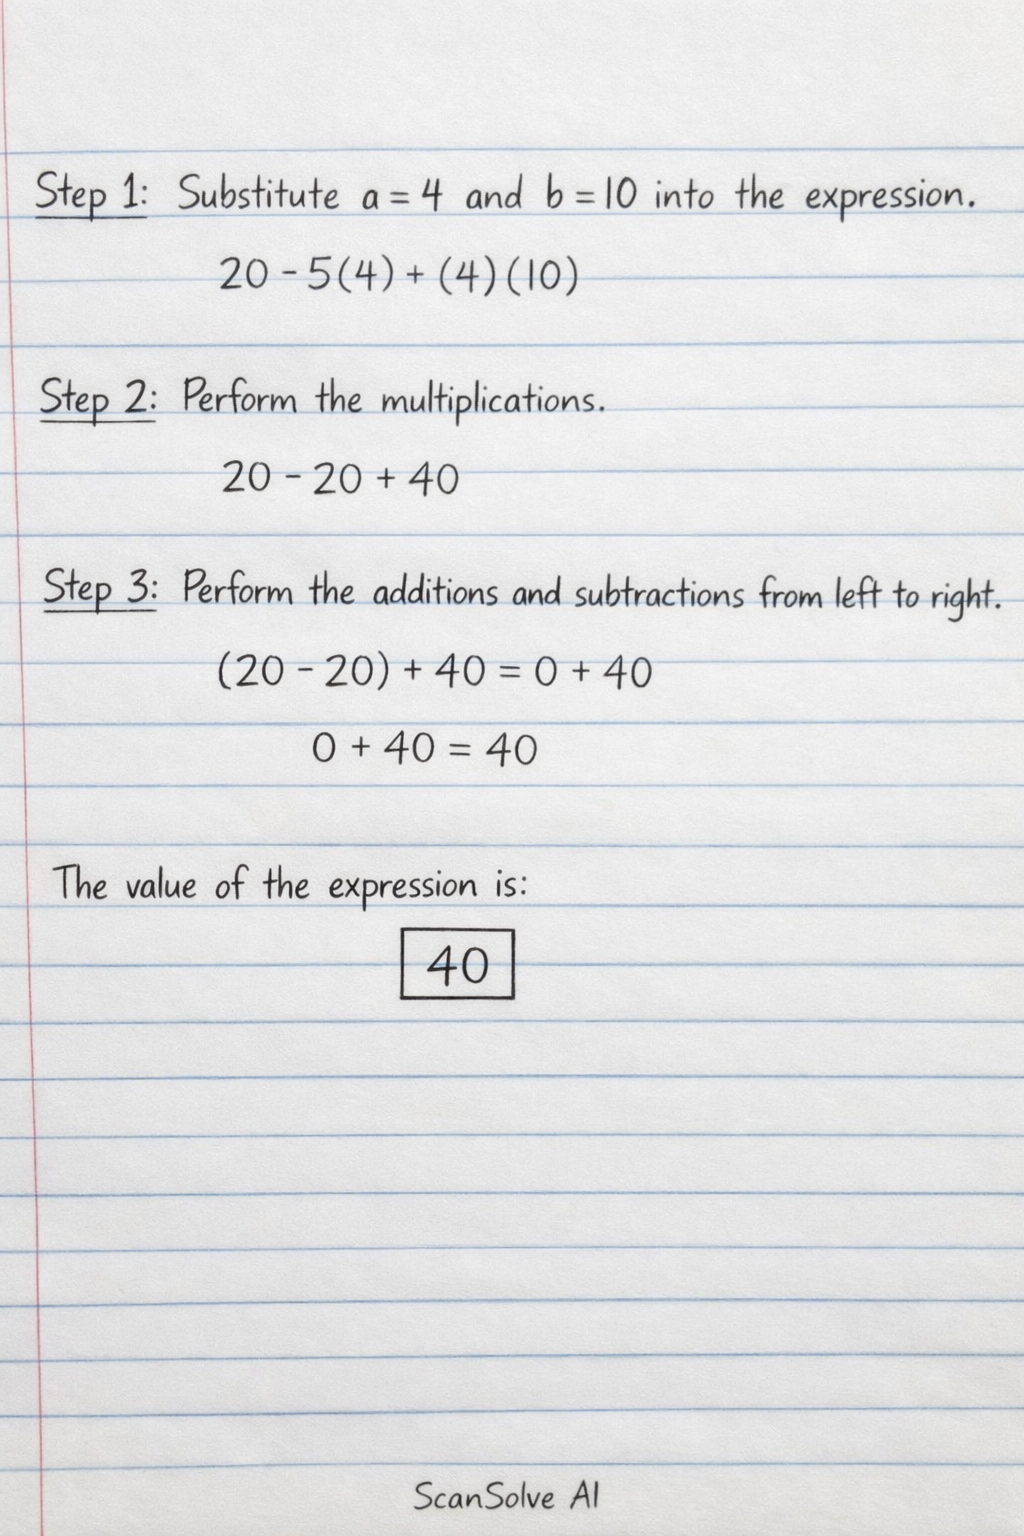 Step 1: Substitute a = 4 and b = 10 into the expression.
20 - 5(4) + (4)(10)
Step 2: Perform the multiplications.
20 - 20 + 40
Step 3: Perform the additions and subtractions from left to right.
(20 - 20) + 40 = 0 + 40
0 + 40 = 40
The value of the expression is:
40
ScanSolve AI